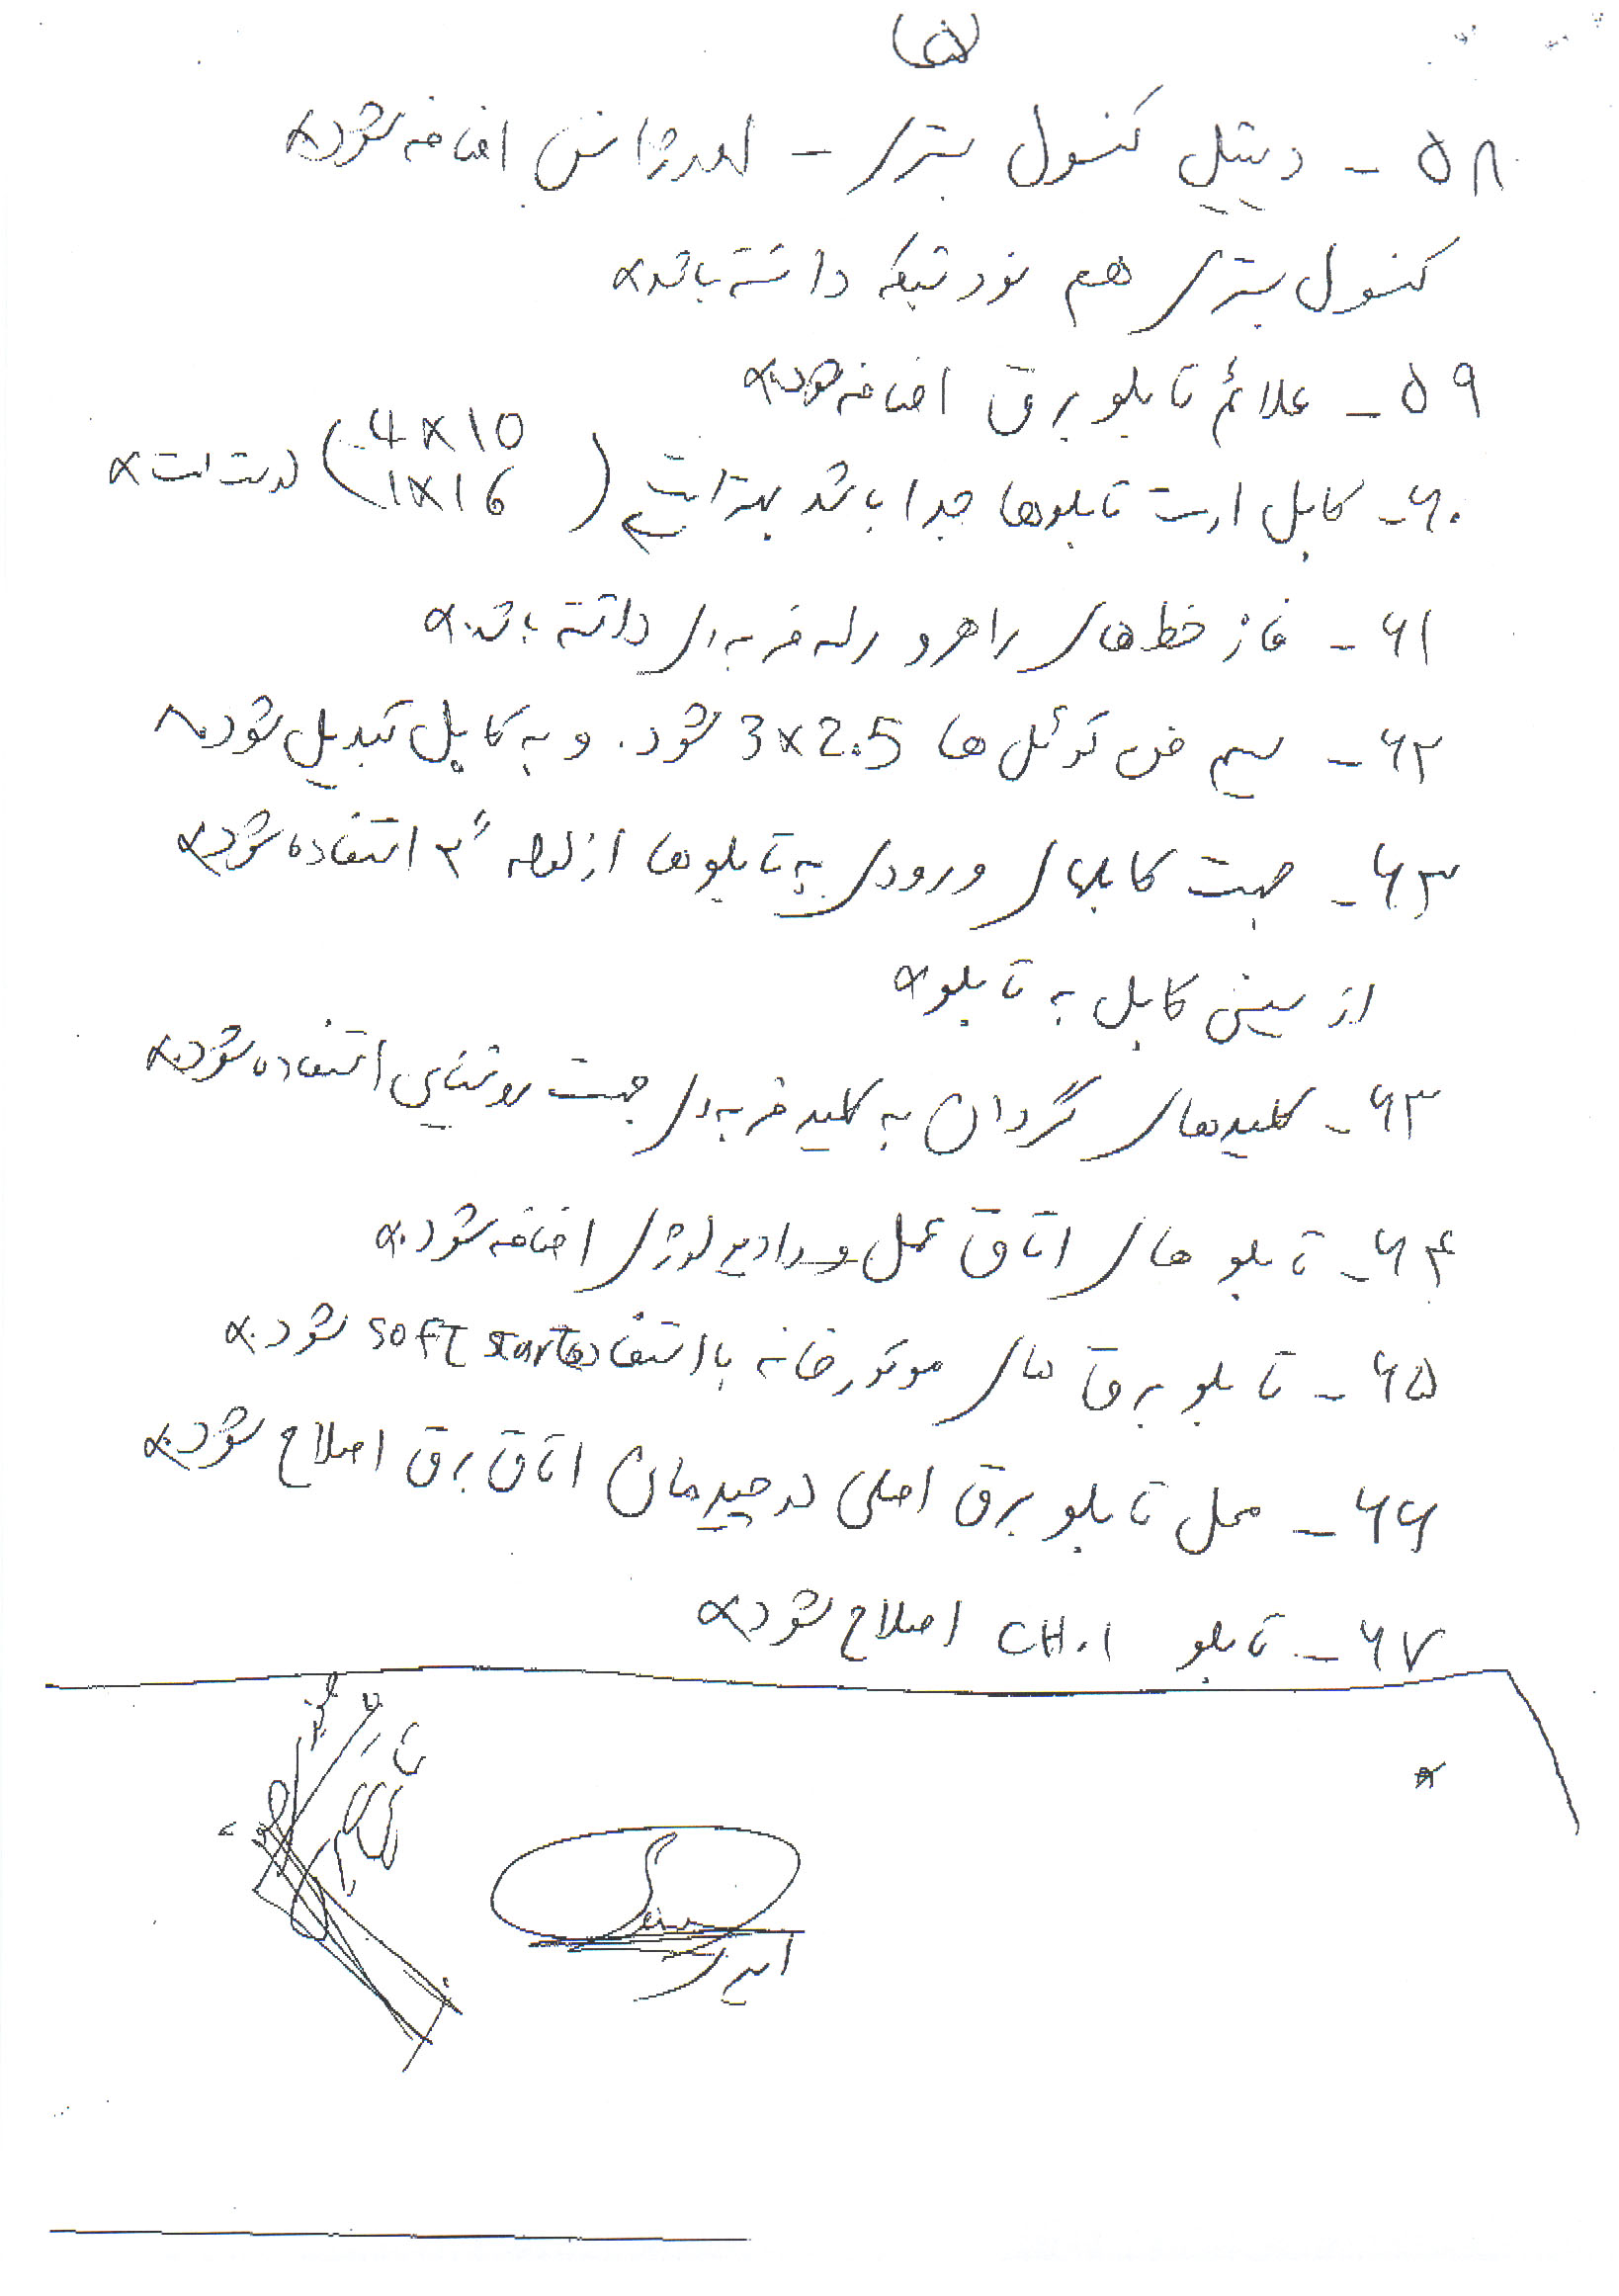 ۵
۵۸ - دیتیل کنسول بستری - اورژانس اضافه شود.
کنسول بستری هم نود شبکه داشته باشد.
۵۹ - علائم تابلو برق اضافه شود.
۶۰ - کابل ارت تابلوها جدا باشد بهتر است (4x10 1x16) درست است
۶۱ - فاز خط‌های راهرو رله ضربه‌ای داشته باشد.
۶۲ - سیم فن کوئل‌ها 3x2.5 شود. و به کابل تبدیل شود.
۶۳ - جهت کابلهای ورودی به تابلوها از لوله ۳" استفاده شود
از سینی کابل به تابلو
۶۳ - کلیدهای گردان به کلید ضربه‌ای جهت روشنایی استفاده شود.
۶۴ - تابلو های اتاق عمل و رادیولوژی اضافه شود.
۶۵ - تابلو برق های موتورخانه با استفاده soft start شود.
۶۶ - محل تابلو برق اصلی در چیدمان اتاق برق اصلاح شود.
۶۷ - تابلو CH.1 اصلاح شود